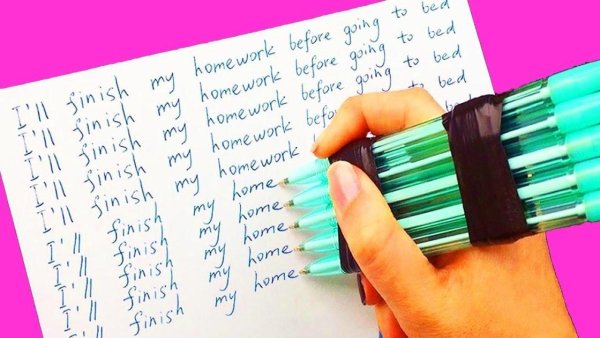 I'll finish my homework before going to bed
I'll finish my homework before going to bed
I'll finish my homework before going to bed
I'll finish my homework before going to bed
I'll finish my homework
I'll finish my home
I'll finish my home
I'll finish my home
I'll finish my home
I'll finish my home